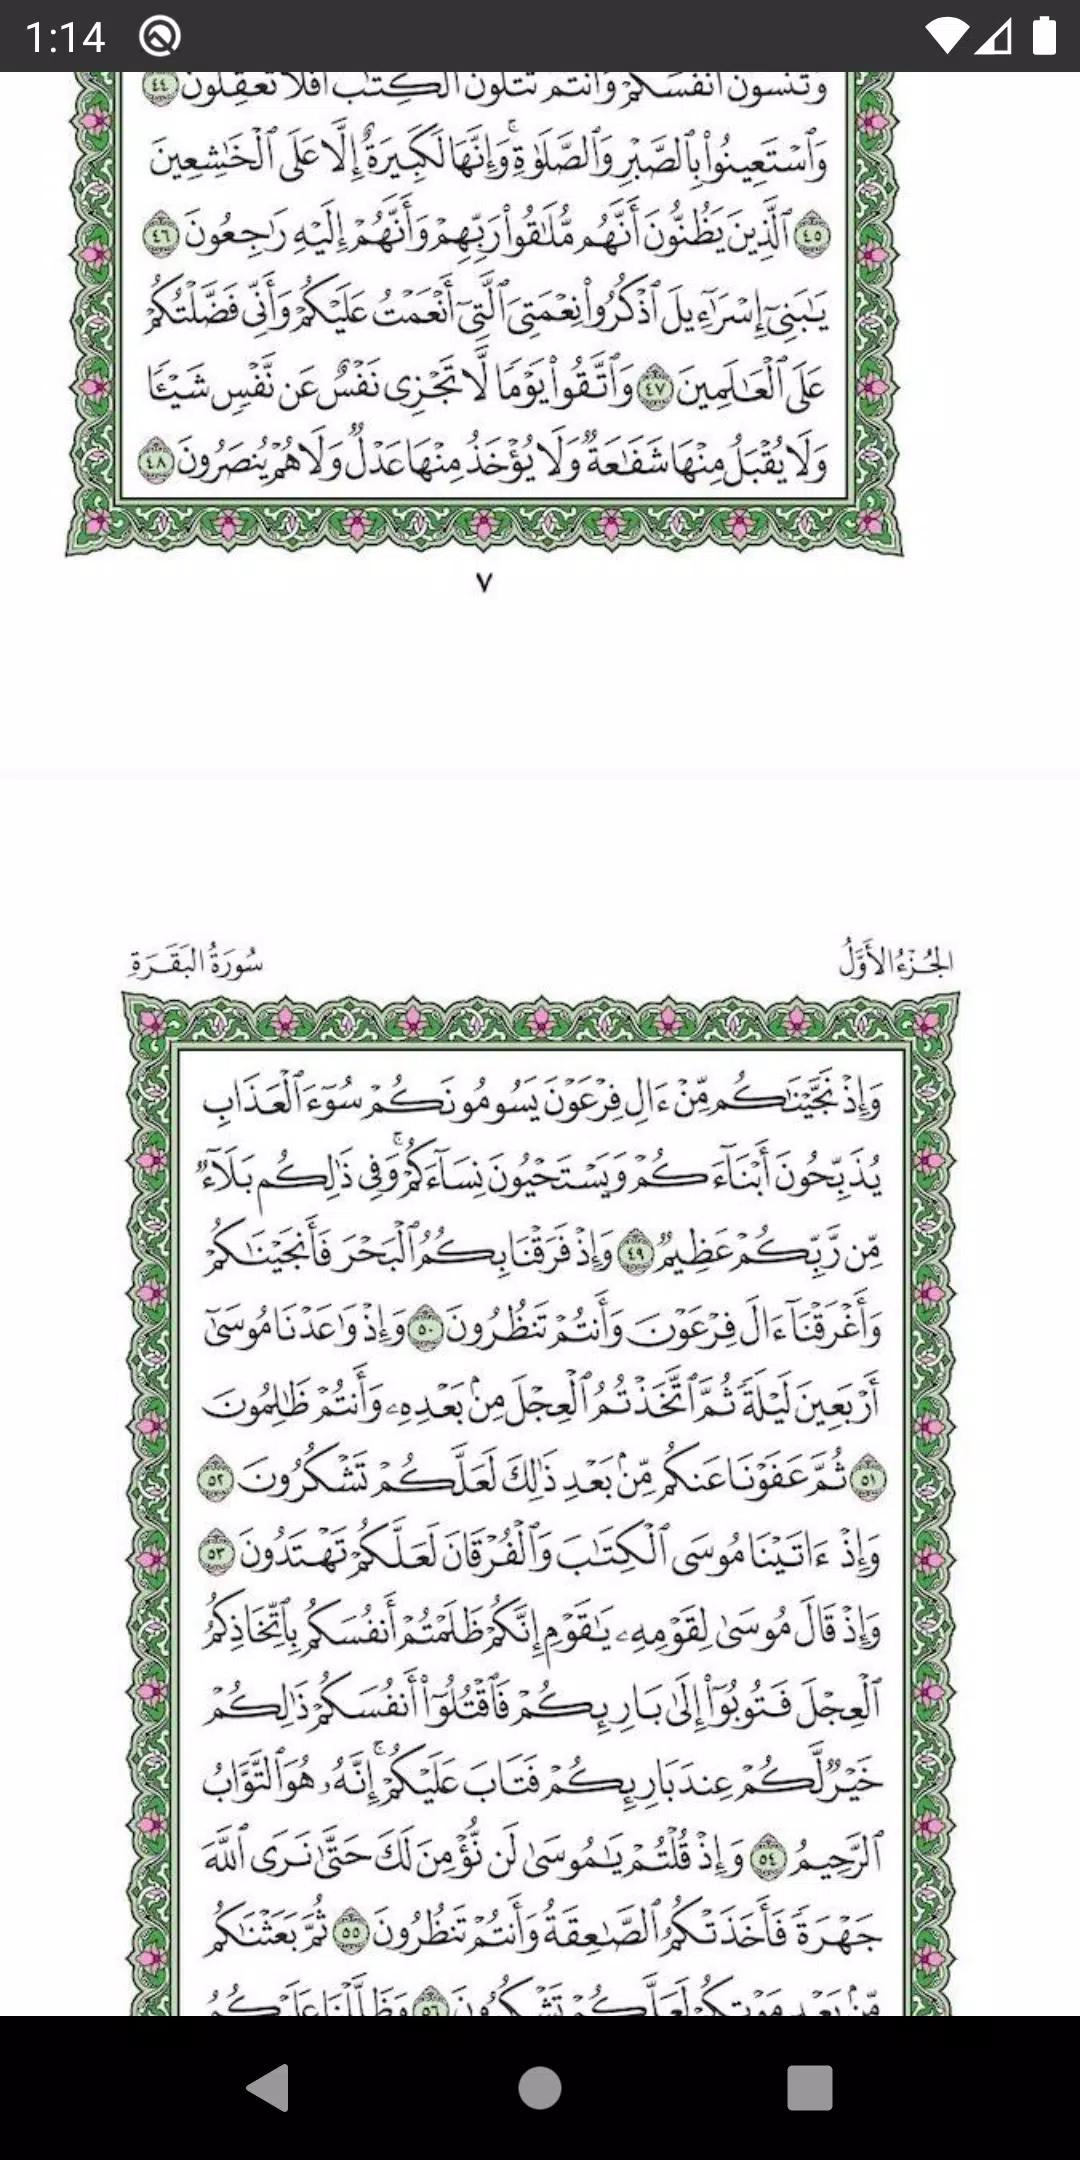 1:14
وَتَنسَوْنَ أَنفُسَكُمْ وَأَنتُمْ تَتْلُونَ ٱلْكِتَٰبَ أَفَلَا تَعْقِلُونَ ٤٤
وَٱسْتَعِينُوا۟ بِٱلصَّبْرِ وَٱلصَّلَوٰةِ ۚ وَإِنَّهَا لَكَبِيرَةٌ إِلَّا عَلَى ٱلْخَٰشِعِينَ
٤٥ ٱلَّذِينَ يَظُنُّونَ أَنَّهُم مُّلَٰقُوا۟ رَبِّهِمْ وَأَنَّهُمْ إِلَيْهِ رَٰجِعُونَ ٤٦
يَٰبَنِىٓ إِسْرَٰٓءِيلَ ٱذْكُرُوا۟ نِعْمَتِىَ ٱلَّتِىٓ أَنْعَمْتُ عَلَيْكُمْ وَأَنِّى فَضَّلْتُكُمْ
عَلَى ٱلْعَٰلَمِينَ ٤٧ وَٱتَّقُوا۟ يَوْمًا لَّا تَجْزِى نَفْسٌ عَن نَّفْسٍ شَيْـًٔا
وَلَا يُقْبَلُ مِنْهَا شَفَٰعَةٌ وَلَا يُؤْخَذُ مِنْهَا عَدْلٌ وَلَا هُمْ يُنصَرُونَ ٤٨
٧
الجُزْءُ الأَوَّلُ
سُورَةُ البَقَرَةِ
وَإِذْ نَجَّيْنَٰكُم مِّنْ ءَالِ فِرْعَوْنَ يَسُومُونَكُمْ سُوٓءَ ٱلْعَذَابِ
يُذَبِّحُونَ أَبْنَآءَكُمْ وَيَسْتَحْيُونَ نِسَآءَكُمْ ۚ وَفِى ذَٰلِكُم بَلَآءٌ
مِّن رَّبِّكُمْ عَظِيمٌ ٤٩ وَإِذْ فَرَقْنَا بِكُمُ ٱلْبَحْرَ فَأَنجَيْنَٰكُمْ
وَأَغْرَقْنَآ ءَالَ فِرْعَوْنَ وَأَنتُمْ تَنظُرُونَ ٥٠ وَإِذْ وَٰعَدْنَا مُوسَىٰٓ
أَرْبَعِينَ لَيْلَةً ثُمَّ ٱتَّخَذْتُمُ ٱلْعِجْلَ مِنۢ بَعْدِهِۦ وَأَنتُمْ ظَٰلِمُونَ
٥١ ثُمَّ عَفَوْنَا عَنكُم مِّنۢ بَعْدِ ذَٰلِكَ لَعَلَّكُمْ تَشْكُرُونَ ٥٢
وَإِذْ ءَاتَيْنَا مُوسَى ٱلْكِتَٰبَ وَٱلْفُرْقَانَ لَعَلَّكُمْ تَهْتَدُونَ ٥٣
وَإِذْ قَالَ مُوسَىٰ لِقَوْمِهِۦ يَٰقَوْمِ إِنَّكُمْ ظَلَمْتُمْ أَنفُسَكُم بِٱتِّخَاذِكُمُ
ٱلْعِجْلَ فَتُوبُوٓا۟ إِلَىٰ بَارِئِكُمْ فَٱقْتُلُوٓا۟ أَنفُسَكُمْ ذَٰلِكُمْ
خَيْرٌ لَّكُمْ عِندَ بَارِئِكُمْ فَتَابَ عَلَيْكُمْ ۚ إِنَّهُۥ هُوَ ٱلتَّوَّابُ
ٱلرَّحِيمُ ٥٤ وَإِذْ قُلْتُمْ يَٰمُوسَىٰ لَن نُّؤْمِنَ لَكَ حَتَّىٰ نَرَى ٱللَّهَ
جَهْرَةً فَأَخَذَتْكُمُ ٱلصَّٰعِقَةُ وَأَنتُمْ تَنظُرُونَ ٥٥ ثُمَّ بَعَثْنَٰكُم
مِّنۢ بَعْدِ مَوْتِكُمْ لَعَلَّكُمْ تَشْكُرُونَ ٥٦ وَظَلَّلْنَا عَلَيْكُمُ